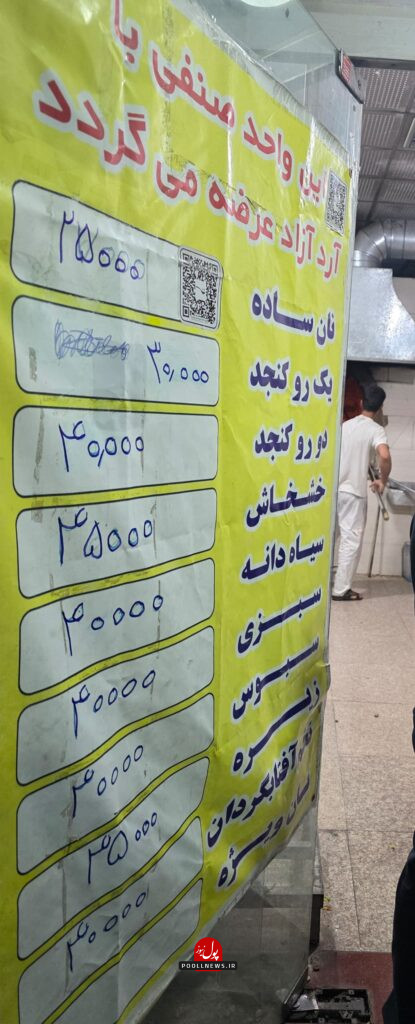 این واحد صنفی با
آرد آزاد عرضه می گردد
نان ساده ۲۵۰۰۰
یک رو کنجد ۳۰,۰۰۰
دو رو کنجد ۴۰,۰۰۰
خشخاش ۴۵۰۰۰
سیاه دانه ۴۰۰۰۰
سبزی ۴۰۰۰۰
سبوس ۴۰۰۰۰
زیره ۴۵۰۰۰
آفتابگردان ۴۰۰۰۰
نان ویژه
پول نیوز
POOLLNEWS.IR